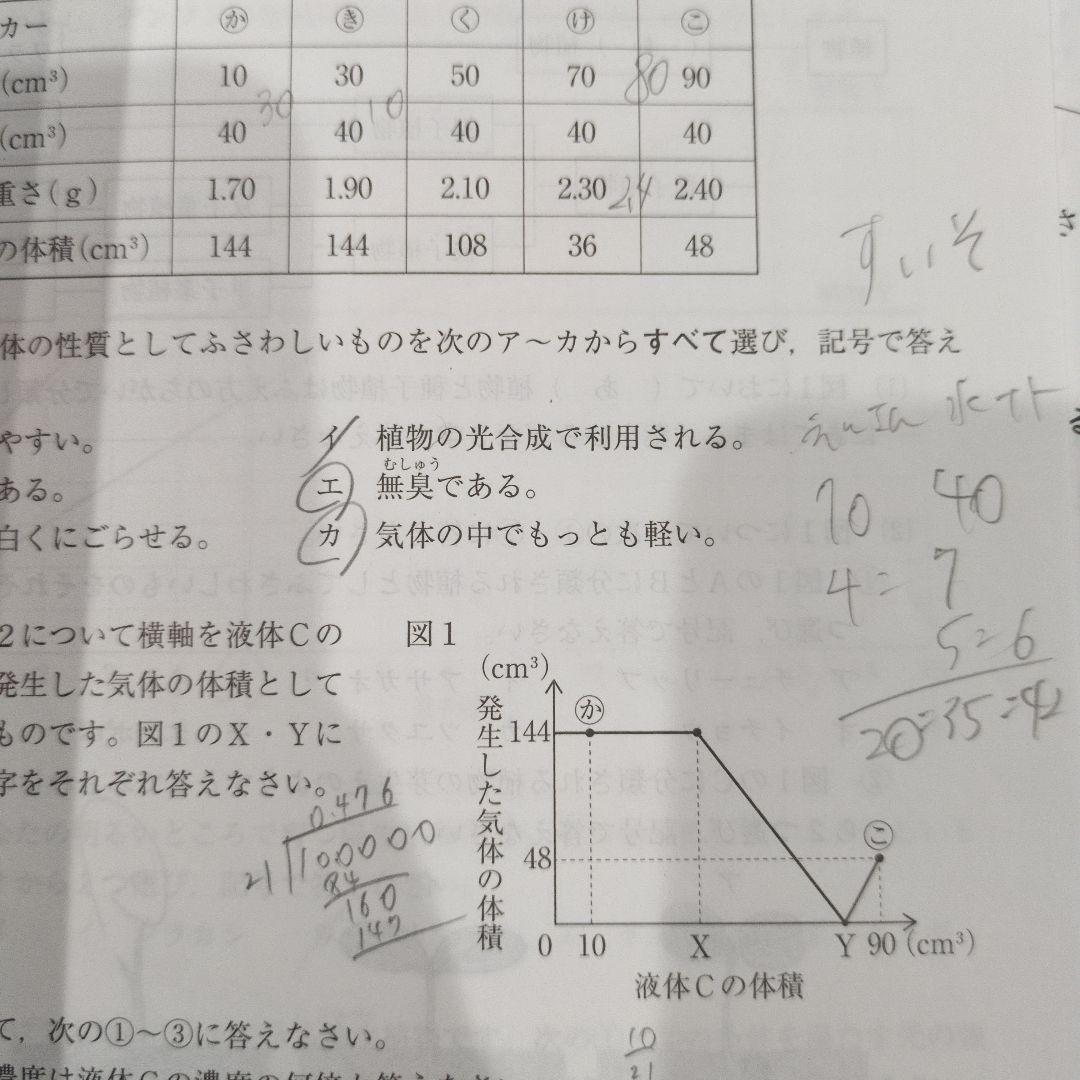 カー か き く け こ
(cm³) 10 30 50 70 80 90
30 10
(cm³) 40 40 40 40 40
重さ(g) 1.70 1.90 2.10 2.30 2.4 2.40
の体積(cm³) 144 144 108 36 48
すいそ
体の性質としてふさわしいものを次のア～カからすべて選び，記号で答え
やすい。 イ 植物の光合成で利用される。
むしゅう
ある。 エ 無臭である。
白くにごらせる。 カ 気体の中でもっとも軽い。
70 40
4= 7
5=6
20=35=42
2について横軸を液体Cの 図1
発生した気体の体積として
ものです。図1のX・Yに
字をそれぞれ答えなさい。
(cm³)
発生した気体の体積
か
144
こ
48
0 10 X Y 90 (cm³)
液体Cの体積
0.476
21 100000
84
160
147
て，次の①～③に答えなさい。
10
21